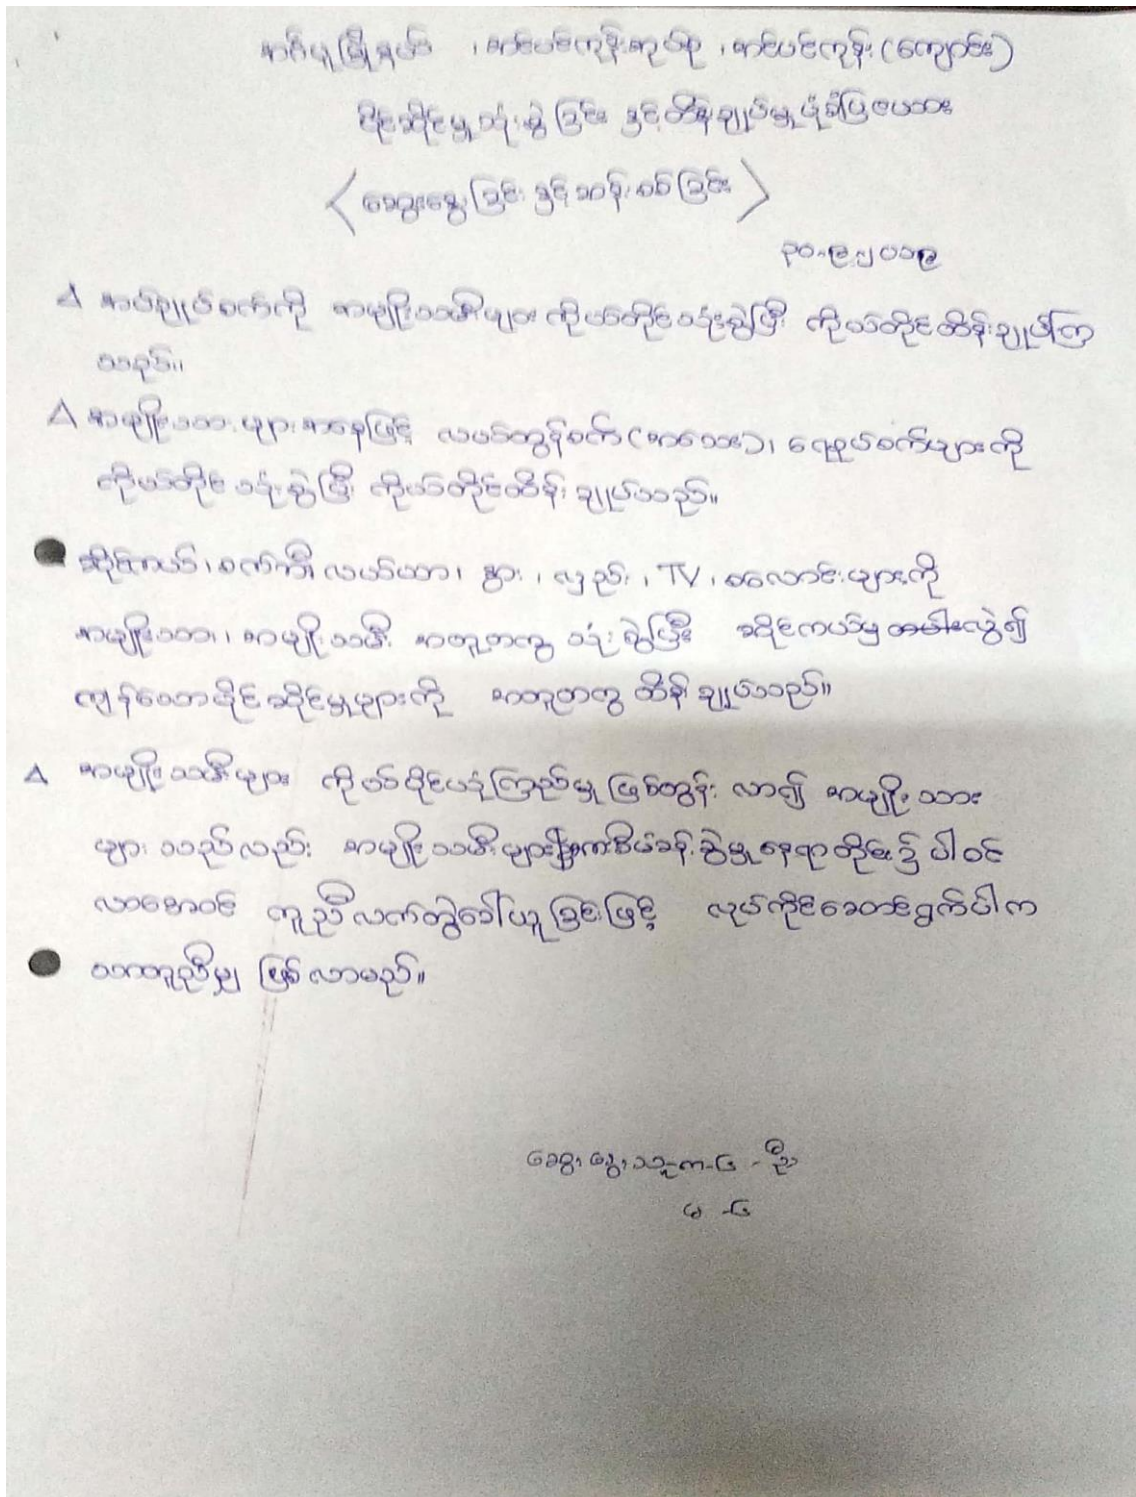 အင်ပင်ကုန်းအုပ်စု ၊ အင်ပင်ကုန်း (ကျောင်း)
ပိုင်ဆိုင်မှု သုံးစွဲခြင်း နှင့် ထိန်းချုပ်မှု ပုံစံပြဇယား
< ဆွေးနွေးခြင်း နှင့် ဆန်းစစ်ခြင်း >
၃၀-၉-၂၀၁၉
Δ အပ်ချုပ်စက်ကို အမျိုးသမီးများ ကိုယ်တိုင်သုံးစွဲပြီး ကိုယ်တိုင်ထိန်းချုပ်ကြ
သည်။
Δ အမျိုးသားများအနေဖြင့် လယ်ထွန်စက် (အသေး)၊ ရေစုပ်စက်များကို
ကိုယ်တိုင်သုံးစွဲပြီး ကိုယ်တိုင်ထိန်းချုပ်သည်။
ဆိုင်ကယ်၊ စက်ဘီး၊ လယ်ယာ၊ နွား၊ လှည်း၊ TV၊ စလောင်းများကို
အမျိုးသား၊ အမျိုးသမီး အတူတကွ သုံးစွဲပြီး ဆိုင်ကယ်မှ တစ်ပါးလွဲ၍
ကျန်သောပိုင်ဆိုင်မှုများကို အတူတကွ ထိန်းချုပ်သည်။
Δ အမျိုးသမီးများ ကိုယ်ပိုင်ယုံကြည်မှု ဖြစ်ထွန်းလာ၍ အမျိုးသား
များသည်လည်း အမျိုးသမီးများ စီမံခန့်ခွဲမှုနေရာတိုင်း၌ ပါဝင်
လာအောင် ကူညီလက်တွဲခေါ်ယူခြင်းဖြင့် လုပ်ကိုင်ဆောင်ရွက်ပါက
သာတူညီမျှ ဖြစ်လာမည်။
ဆွေးနွေးသူ ကျ-၆-ဦး
မ-၆